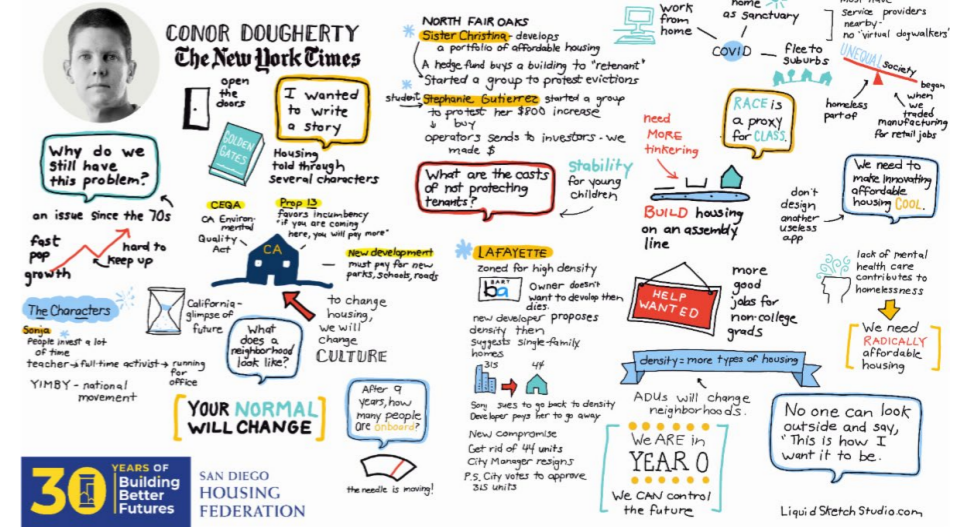 CONOR DOUGHERTY
The New York Times
open
the
doors
GOLDEN
GATES
I wanted
to write
a story
Housing
told through
several characters
Why do we
still have
this problem?
an issue since the 70s
fast
pop
growth
hard to
keep up
CEQA
CA Environ-
mental
Quality
Act
Prop 13
favors incumbency
"if you are coming
here, you will pay more"
CA
New development
must pay for new
parks, schools, roads
The Characters
Sonja
People invest a lot
of time
teacher → full-time activist → running
for
office
YIMBY - national
movement
California -
glimpse of
future
What
does a
neighborhood
look like?
to change
housing,
we will
change
CULTURE
YOUR NORMAL
WILL CHANGE
After 9
years, how
many people
are onboard?
the needle is moving!
30 YEARS OF
Building
Better
Futures
SAN DIEGO
HOUSING
FEDERATION
NORTH FAIR OAKS
Sister Christina - develops
a portfolio of affordable housing
A hedge fund buys a building to "retenant"
Started a group to protest evictions
student Stephanie Gutierrez started a group
to protest her $800 increase
buy
operators sends to investors - we
made $
What are the costs
of not protecting
tenants?
stability
for young
children
LAFAYETTE
zoned for high density
BART
ba
Owner doesn't
want to develop then
dies.
new developer proposes
density then
Suggests single-family
homes
315
44
Sonj sues to go back to density
Developer pays her to go away
New compromise
Get rid of 44 units
City Manager resigns
P.S. City votes to approve
315 units
work
from
home
home
as sanctuary
COVID
flee to
suburbs
service providers
nearby-
no "virtual dogwalkers"
UNEQUAL society
homeless
part of
began
when
we
traded
manufacturing
for retail jobs
RACE is
a proxy
for CLASS.
need
MORE
tinkering
BUILD housing
on an assembly
line
We need to
make innovating
affordable
housing COOL.
don't
design
another
useless
app
HELP
WANTED
more
good
jobs for
non-college
grads
lack of mental
health care
contributes to
homelessness
We need
RADICALLY
affordable
housing
density = more types of housing
ADUs will change
neighborhoods.
We ARE in
YEAR 0
We CAN control
the future
No one can look
outside and say,
"This is how I
want it to be.
LiquidSketchStudio.com